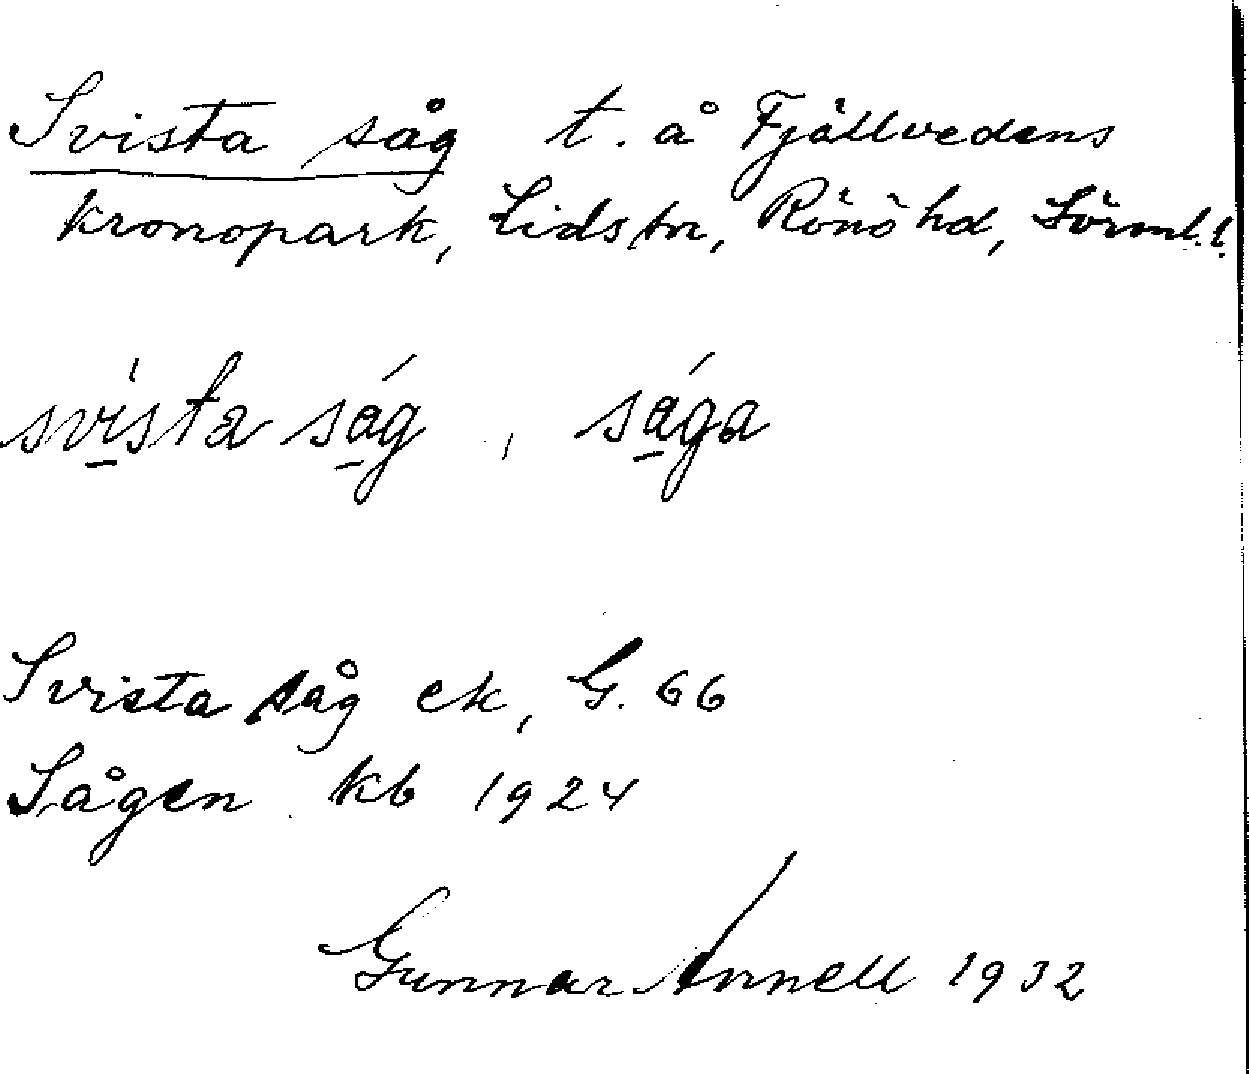 Svista såg t. å Fjällvedens
kronopark, Lids sn, Rönö hd, Sörml. l.
svista såg, såga
Svista såg ek, G. 66
Sågen kb 1924
Gunnar Annell 1932